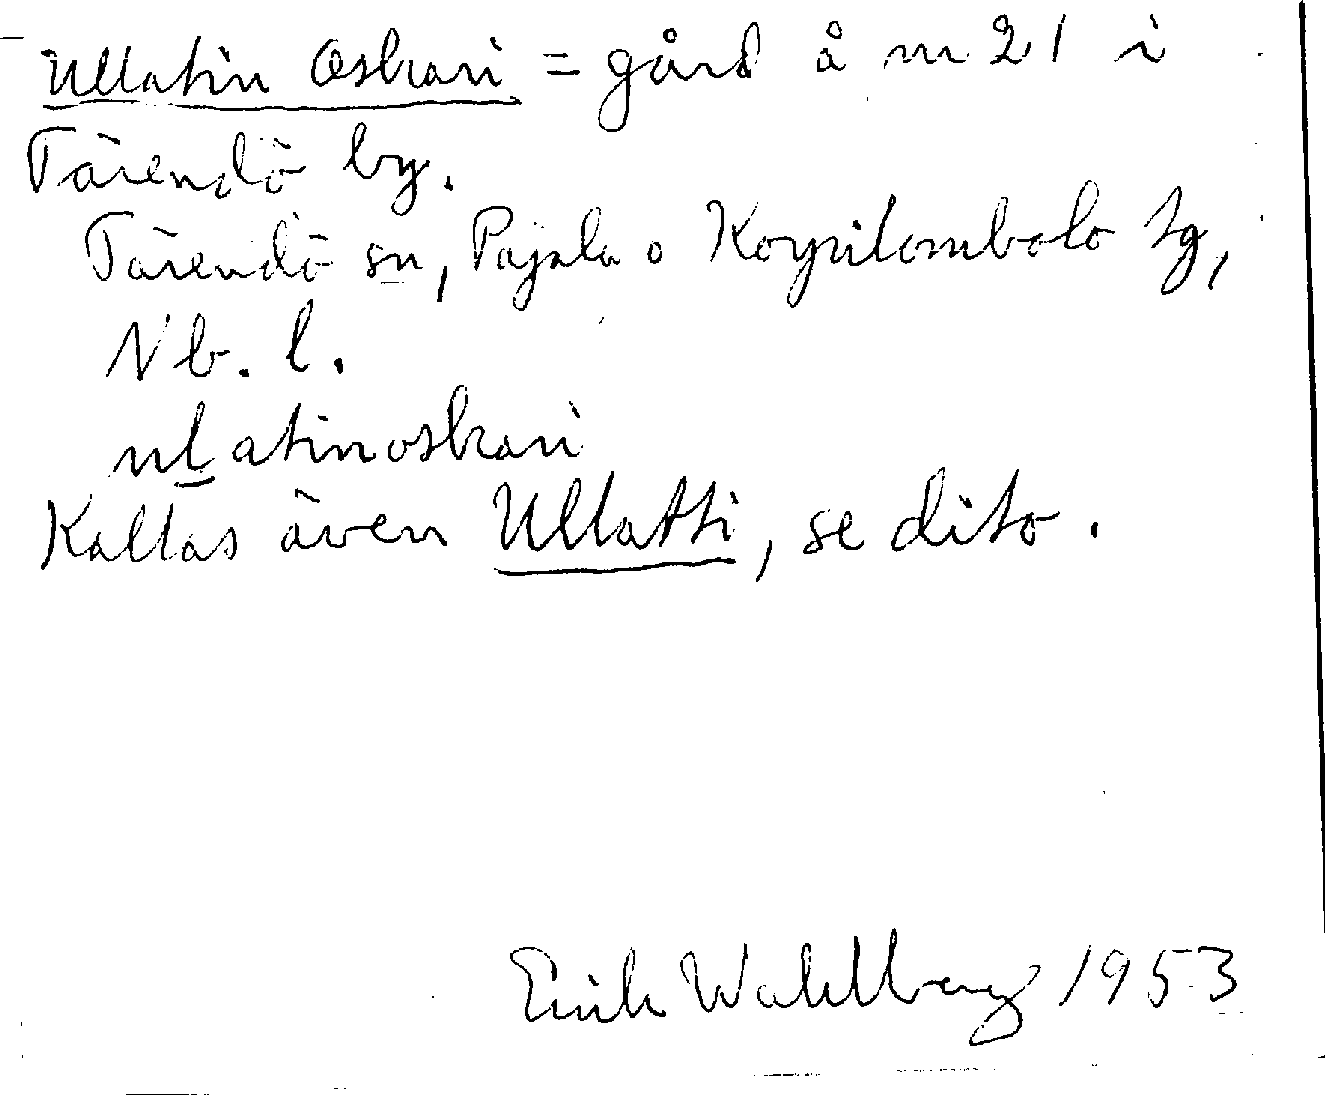 Ullatin Oskari = gård å nr 21 i
Tärendö by.
Tärendö sn, Pajala o Korpilombolo tg,
Nb. l.
ulatinoskari
Kallas även Ullatti, se dito.
Erik Wahlberg 1953